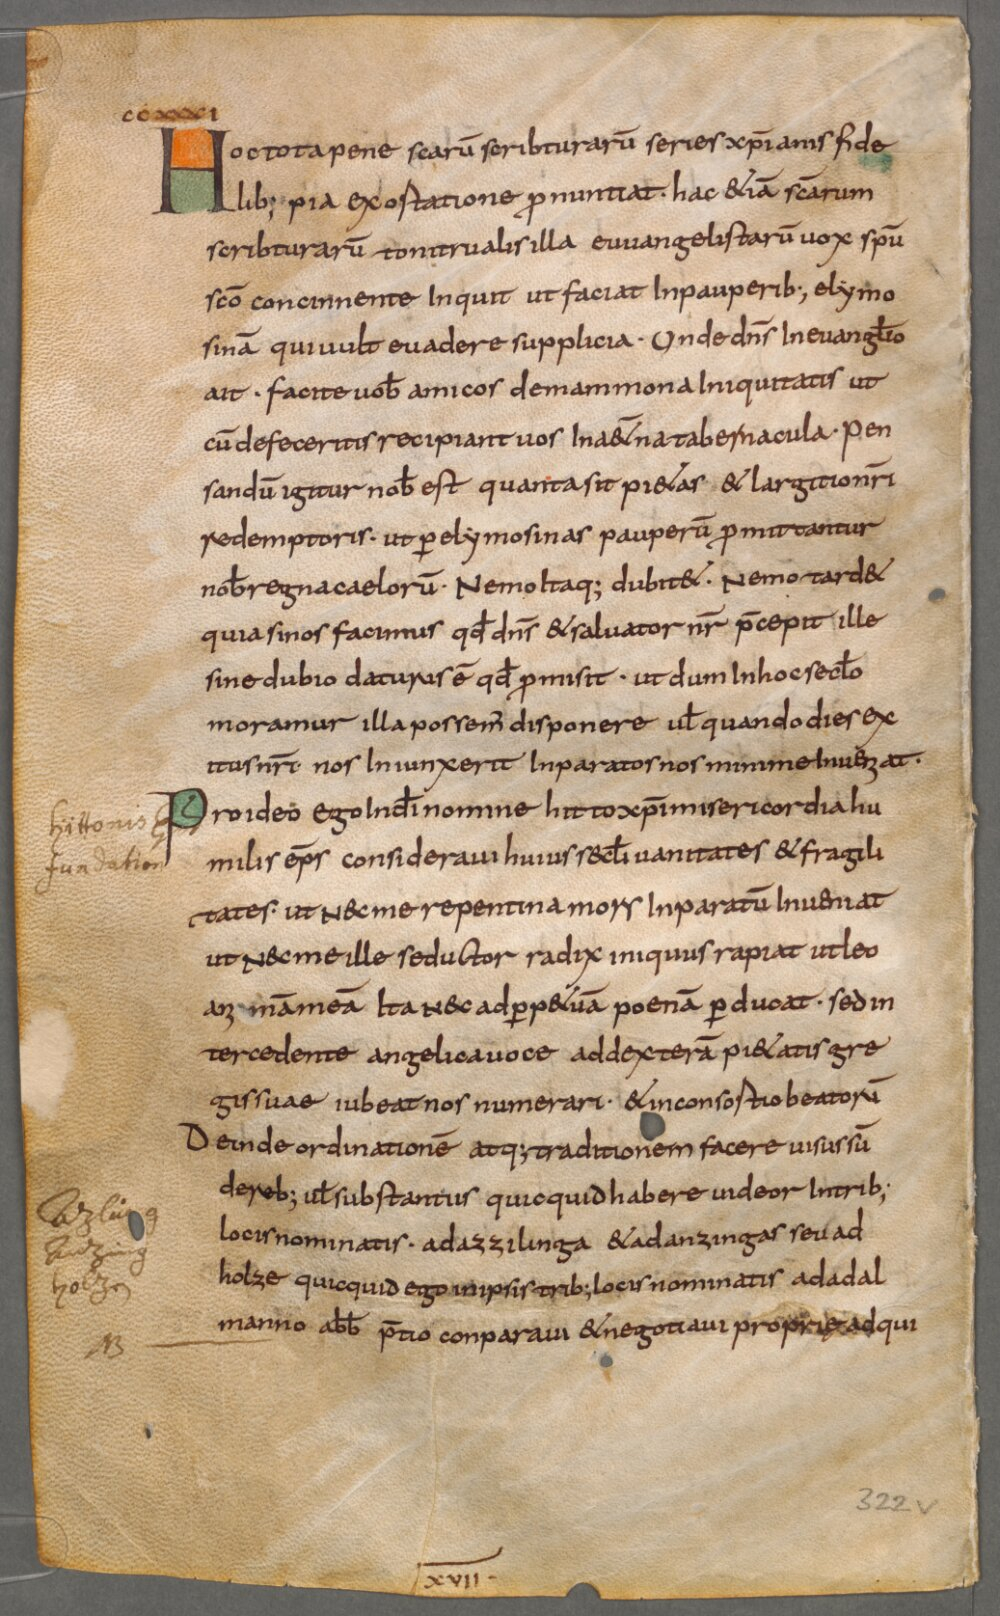 ccxxxi
Hoc tota pene scarū scribturarū series xp̄ianis fide
lib; pia exostatione p̄nuntiat · hac &iā scārum
scribturarū tonitrualis illa euuangelistarū uox sp̄u
scō concinnente Inquit ut faciat Inpauperib·; elymo
sinā qui uult euadere supplicia · Unde dn̄s In euangl̄io
ait · facite uob̄ amicos de mammona Iniquitatis ut
cū defeceritis recipiant uos In a&̄na tabernacula · Pen
sandū igitur nob̄ est quanta sit pi&as & largitio nr̄i
redemptoris · ut p̄ elymosinas pauperū p̄mittantur
nob̄ regna caelorū · Nemo Itaq; dubit& · Nemo tard&
quia si nos facimus qd̄ dn̄s & saluator nr̄ p̄cepit ille
sine dubio daturus ē qd̄ p̄misit · ut dum In hoc secl̄o
moramur illa possem̄ disponere ul̄ quando dies ex
itus nr̄i · nos Iniunxerit Inparatos nos minime Inueniat ·
Hittonis
Pro ideo ego In dī nomine hitto xp̄i misericordia hu
fundation
milis ep̄s consideraui huius secl̄i uanitates & fragili
tates · ut Nec me repentina mors Inparatū Inueniat
ut Nec me ille seductor radix iniquus rapiat ut leo
animā meā Ita Nec ad p̄p&uā poenā p̄ducat · sed in
tercedente angelica uoce ad dexterā pi&atis gre
gis suae iubeat nos numerari · & in consostio beatorū
Deinde ordinationē atq; traditionem facere uisus sū
de reb; ul̄ substantiis quicquid habere uideor In trib;
Azling
locis nominatis · ad azzilinga & ad anzingas seu ad
Anzing
holze quicquid ego in ipsis trib; locis nominatis ad adal
Holzen
manno abb̄ p̄tio conparaui & negotiaui proprie adqui
NB
322v
xvii